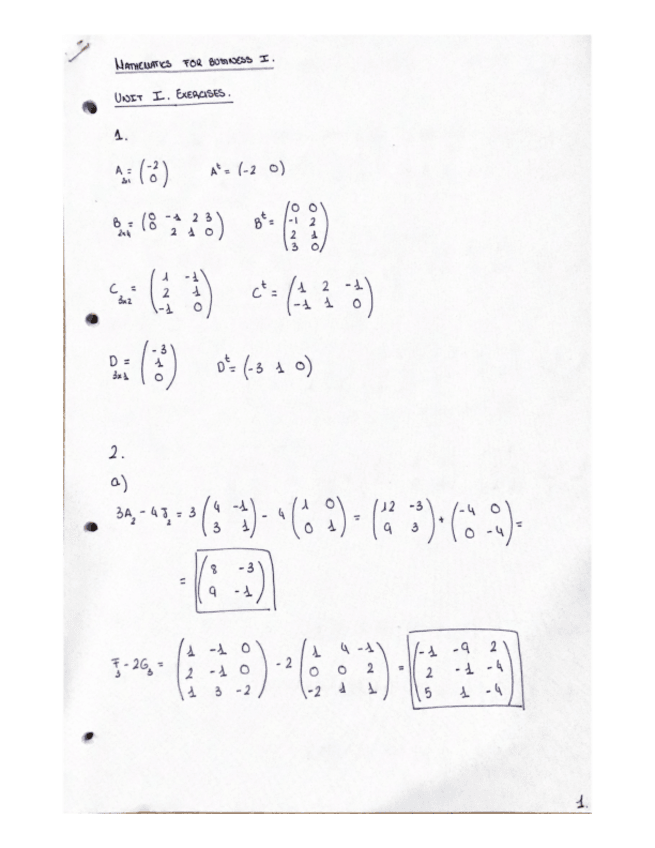 MATHEMATICS FOR BUSINESS I.
UNIT I. EXERCISES.
1.
A 2x1 = (-2; 0) A^t = (-2 0)
B 2x4 = (0 -1 2 3; 0 2 1 0) B^t = (0 0; -1 2; 2 1; 3 0)
C 3x2 = (1 -1; 2 1; -1 0) C^t = (1 2 -1; -1 1 0)
D 3x1 = (-3; 1; 0) D^t = (-3 1 0)
2.
a)
3A_2 - 4I_2 = 3 (4 -1; 3 1) - 4 (1 0; 0 1) = (12 -3; 9 3) + (-4 0; 0 -4) =
= (8 -3; 9 -1)
F_3 - 2G_3 = (1 -1 0; 2 -1 0; 1 3 -2) - 2 (1 4 -1; 0 0 2; -2 1 1) = (-1 -9 2; 2 -1 -4; 5 1 -4)
1.